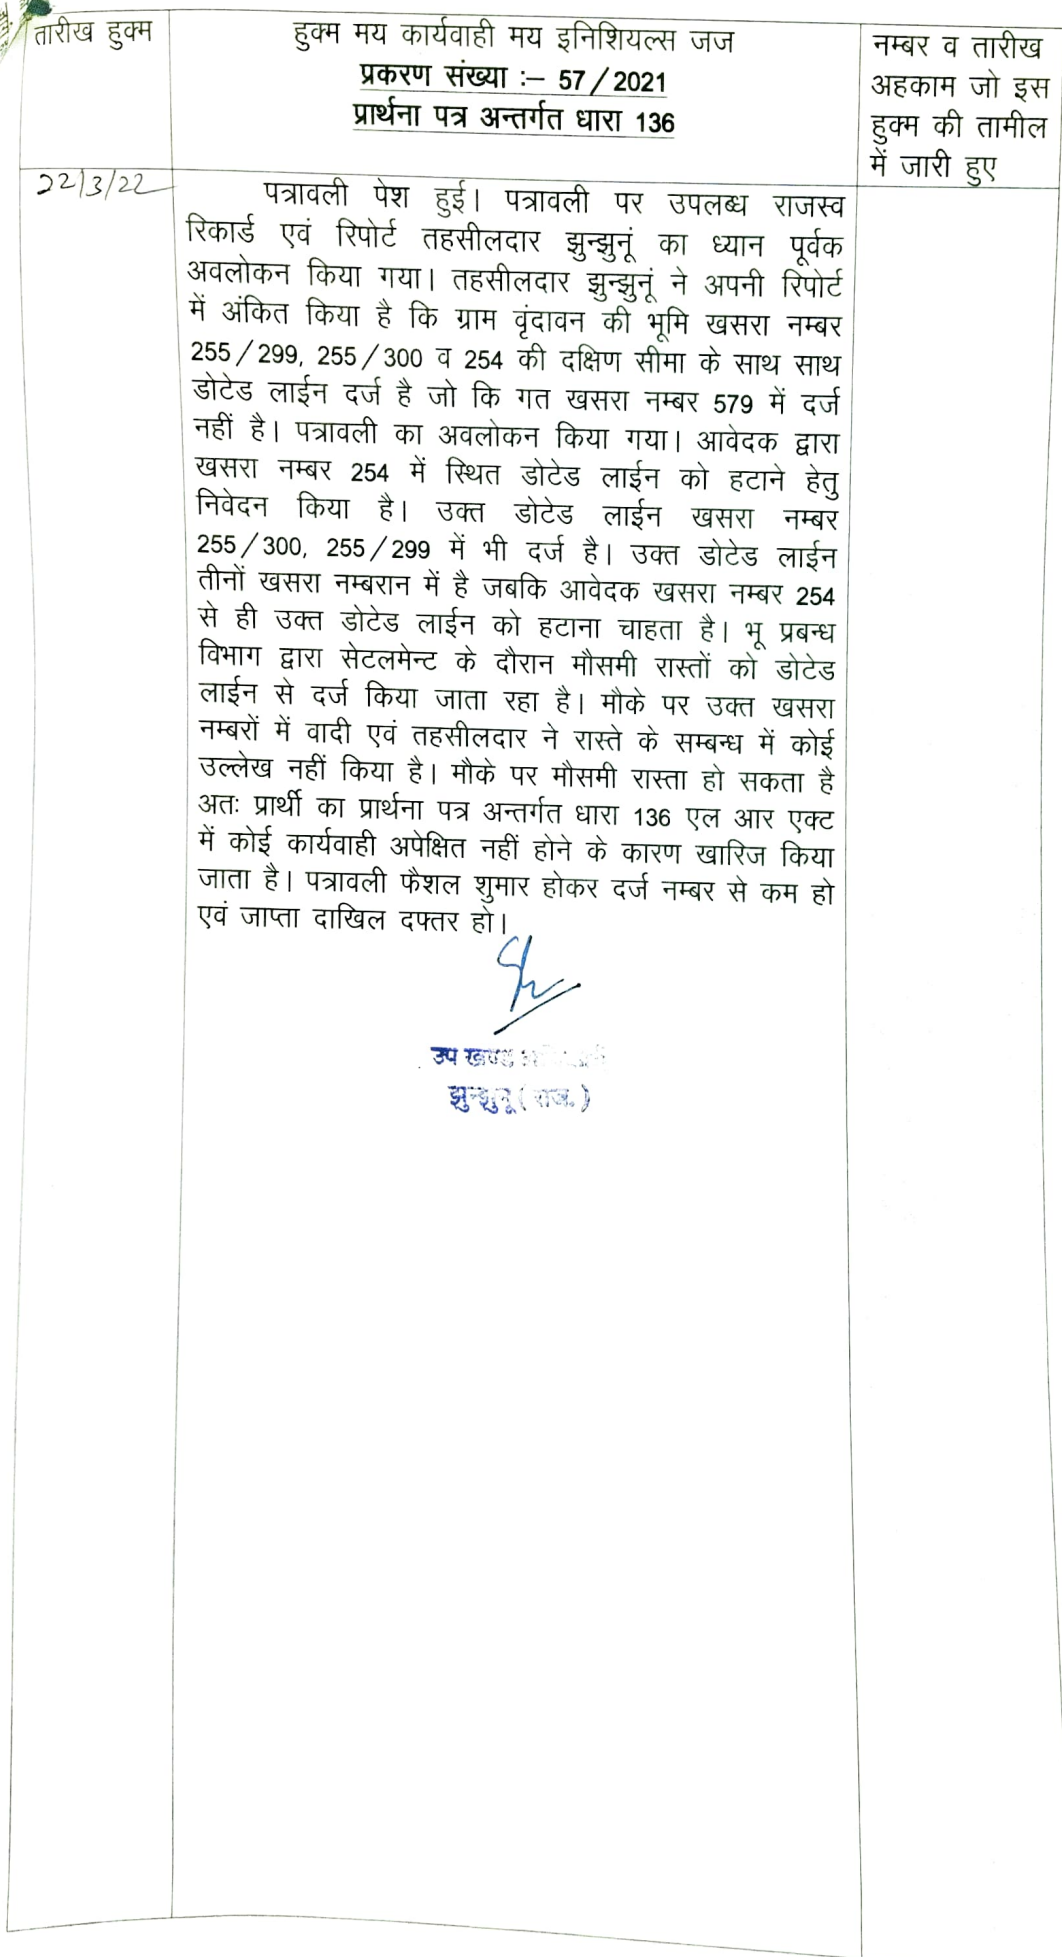 तारीख हुक्म
हुक्म मय कार्यवाही मय इनिशियल्स जज
प्रकरण संख्या :– 57/2021
प्रार्थना पत्र अन्तर्गत धारा 136
नम्बर व तारीख
अहकाम जो इस
हुक्म की तामील
में जारी हुए
22/3/22
पत्रावली पेश हुई। पत्रावली पर उपलब्ध राजस्व
रिकार्ड एवं रिपोर्ट तहसीलदार झुन्झुनूं का ध्यान पूर्वक
अवलोकन किया गया। तहसीलदार झुन्झुनूं ने अपनी रिपोर्ट
में अंकित किया है कि ग्राम वृंदावन की भूमि खसरा नम्बर
255/299, 255/300 व 254 की दक्षिण सीमा के साथ साथ
डोटेड लाईन दर्ज है जो कि गत खसरा नम्बर 579 में दर्ज
नहीं है। पत्रावली का अवलोकन किया गया। आवेदक द्वारा
खसरा नम्बर 254 में स्थित डोटेड लाईन को हटाने हेतु
निवेदन किया है। उक्त डोटेड लाईन खसरा नम्बर
255/300, 255/299 में भी दर्ज है। उक्त डोटेड लाईन
तीनों खसरा नम्बरान में है जबकि आवेदक खसरा नम्बर 254
से ही उक्त डोटेड लाईन को हटाना चाहता है। भू प्रबन्ध
विभाग द्वारा सेटलमेन्ट के दौरान मौसमी रास्तों को डोटेड
लाईन से दर्ज किया जाता रहा है। मौके पर उक्त खसरा
नम्बरों में वादी एवं तहसीलदार ने रास्ते के सम्बन्ध में कोई
उल्लेख नहीं किया है। मौके पर मौसमी रास्ता हो सकता है
अतः प्रार्थी का प्रार्थना पत्र अन्तर्गत धारा 136 एल आर एक्ट
में कोई कार्यवाही अपेक्षित नहीं होने के कारण खारिज किया
जाता है। पत्रावली फैशल शुमार होकर दर्ज नम्बर से कम हो
एवं जाप्ता दाखिल दफ्तर हो।
उप खण्ड
झुन्झुनू (राज.)